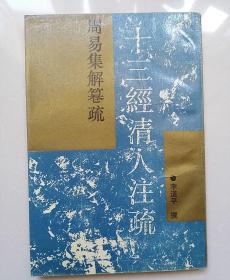 十三經清人注疏
周易集解纂疏
李道平 撰